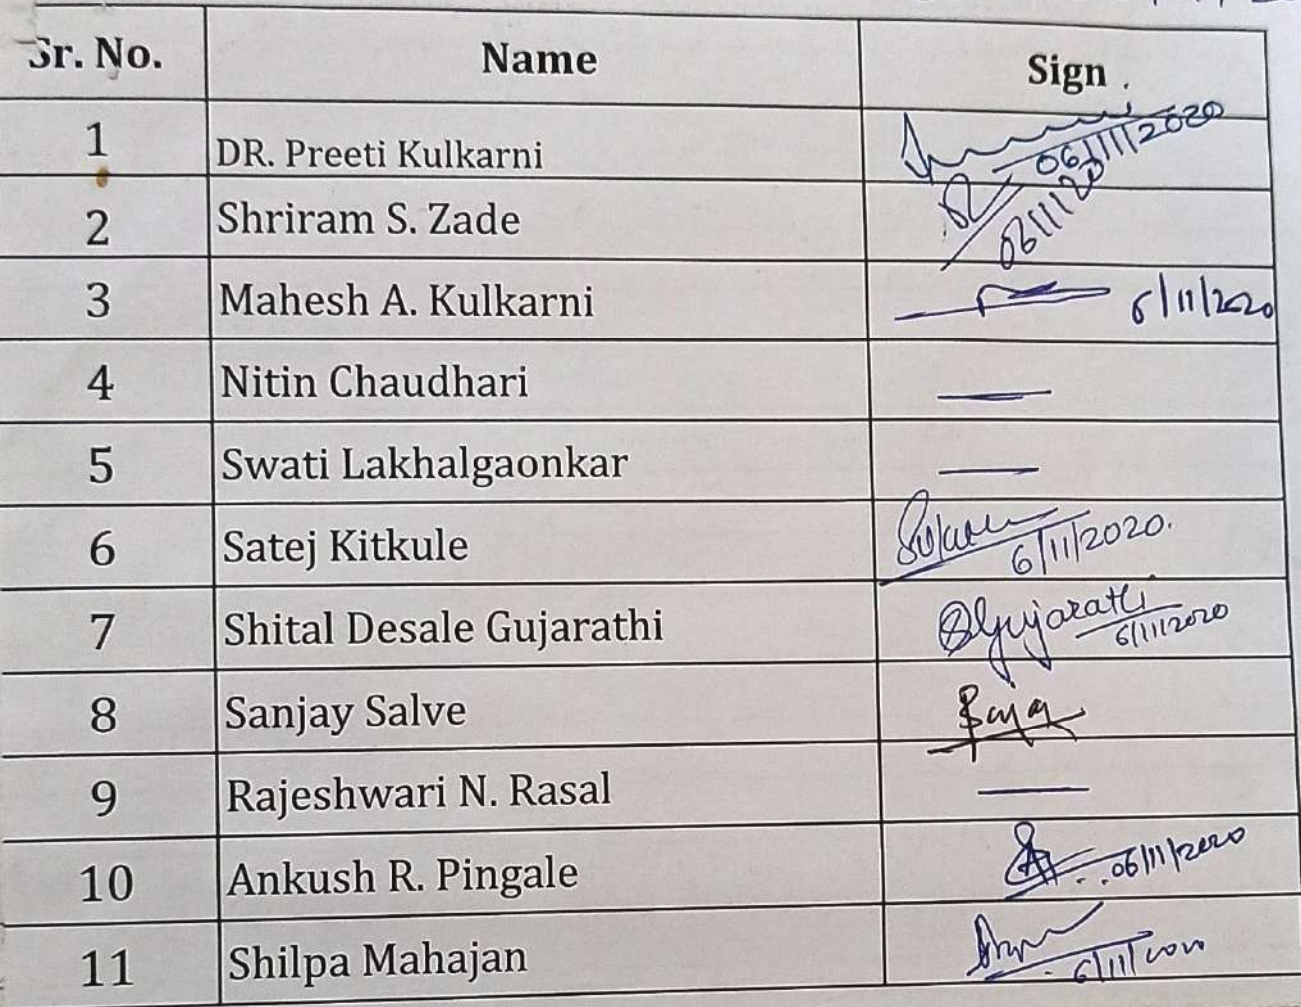 Sr. No. Name Sign
1 DR. Preeti Kulkarni 06/11/2020
2 Shriram S. Zade 06/11/20
3 Mahesh A. Kulkarni 6/11/2020
4 Nitin Chaudhari —
5 Swati Lakhalgaonkar —
6 Satej Kitkule 6/11/2020.
7 Shital Desale Gujarathi SGujarathi 6/11/2020
8 Sanjay Salve
9 Rajeshwari N. Rasal —
10 Ankush R. Pingale 06/11/2020
11 Shilpa Mahajan 6/11/2020